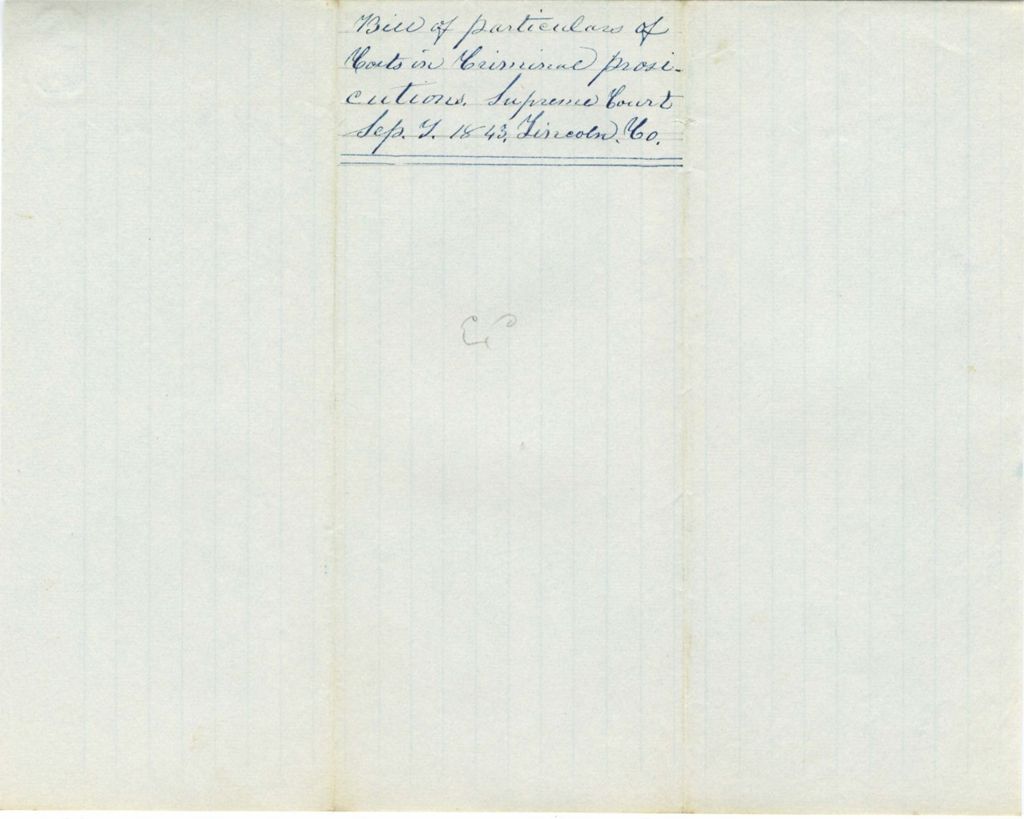 Bill of particulars of
Costs in Criminal prose-
cutions. Supreme Court
Sep. T. 1843, Lincoln. Co.